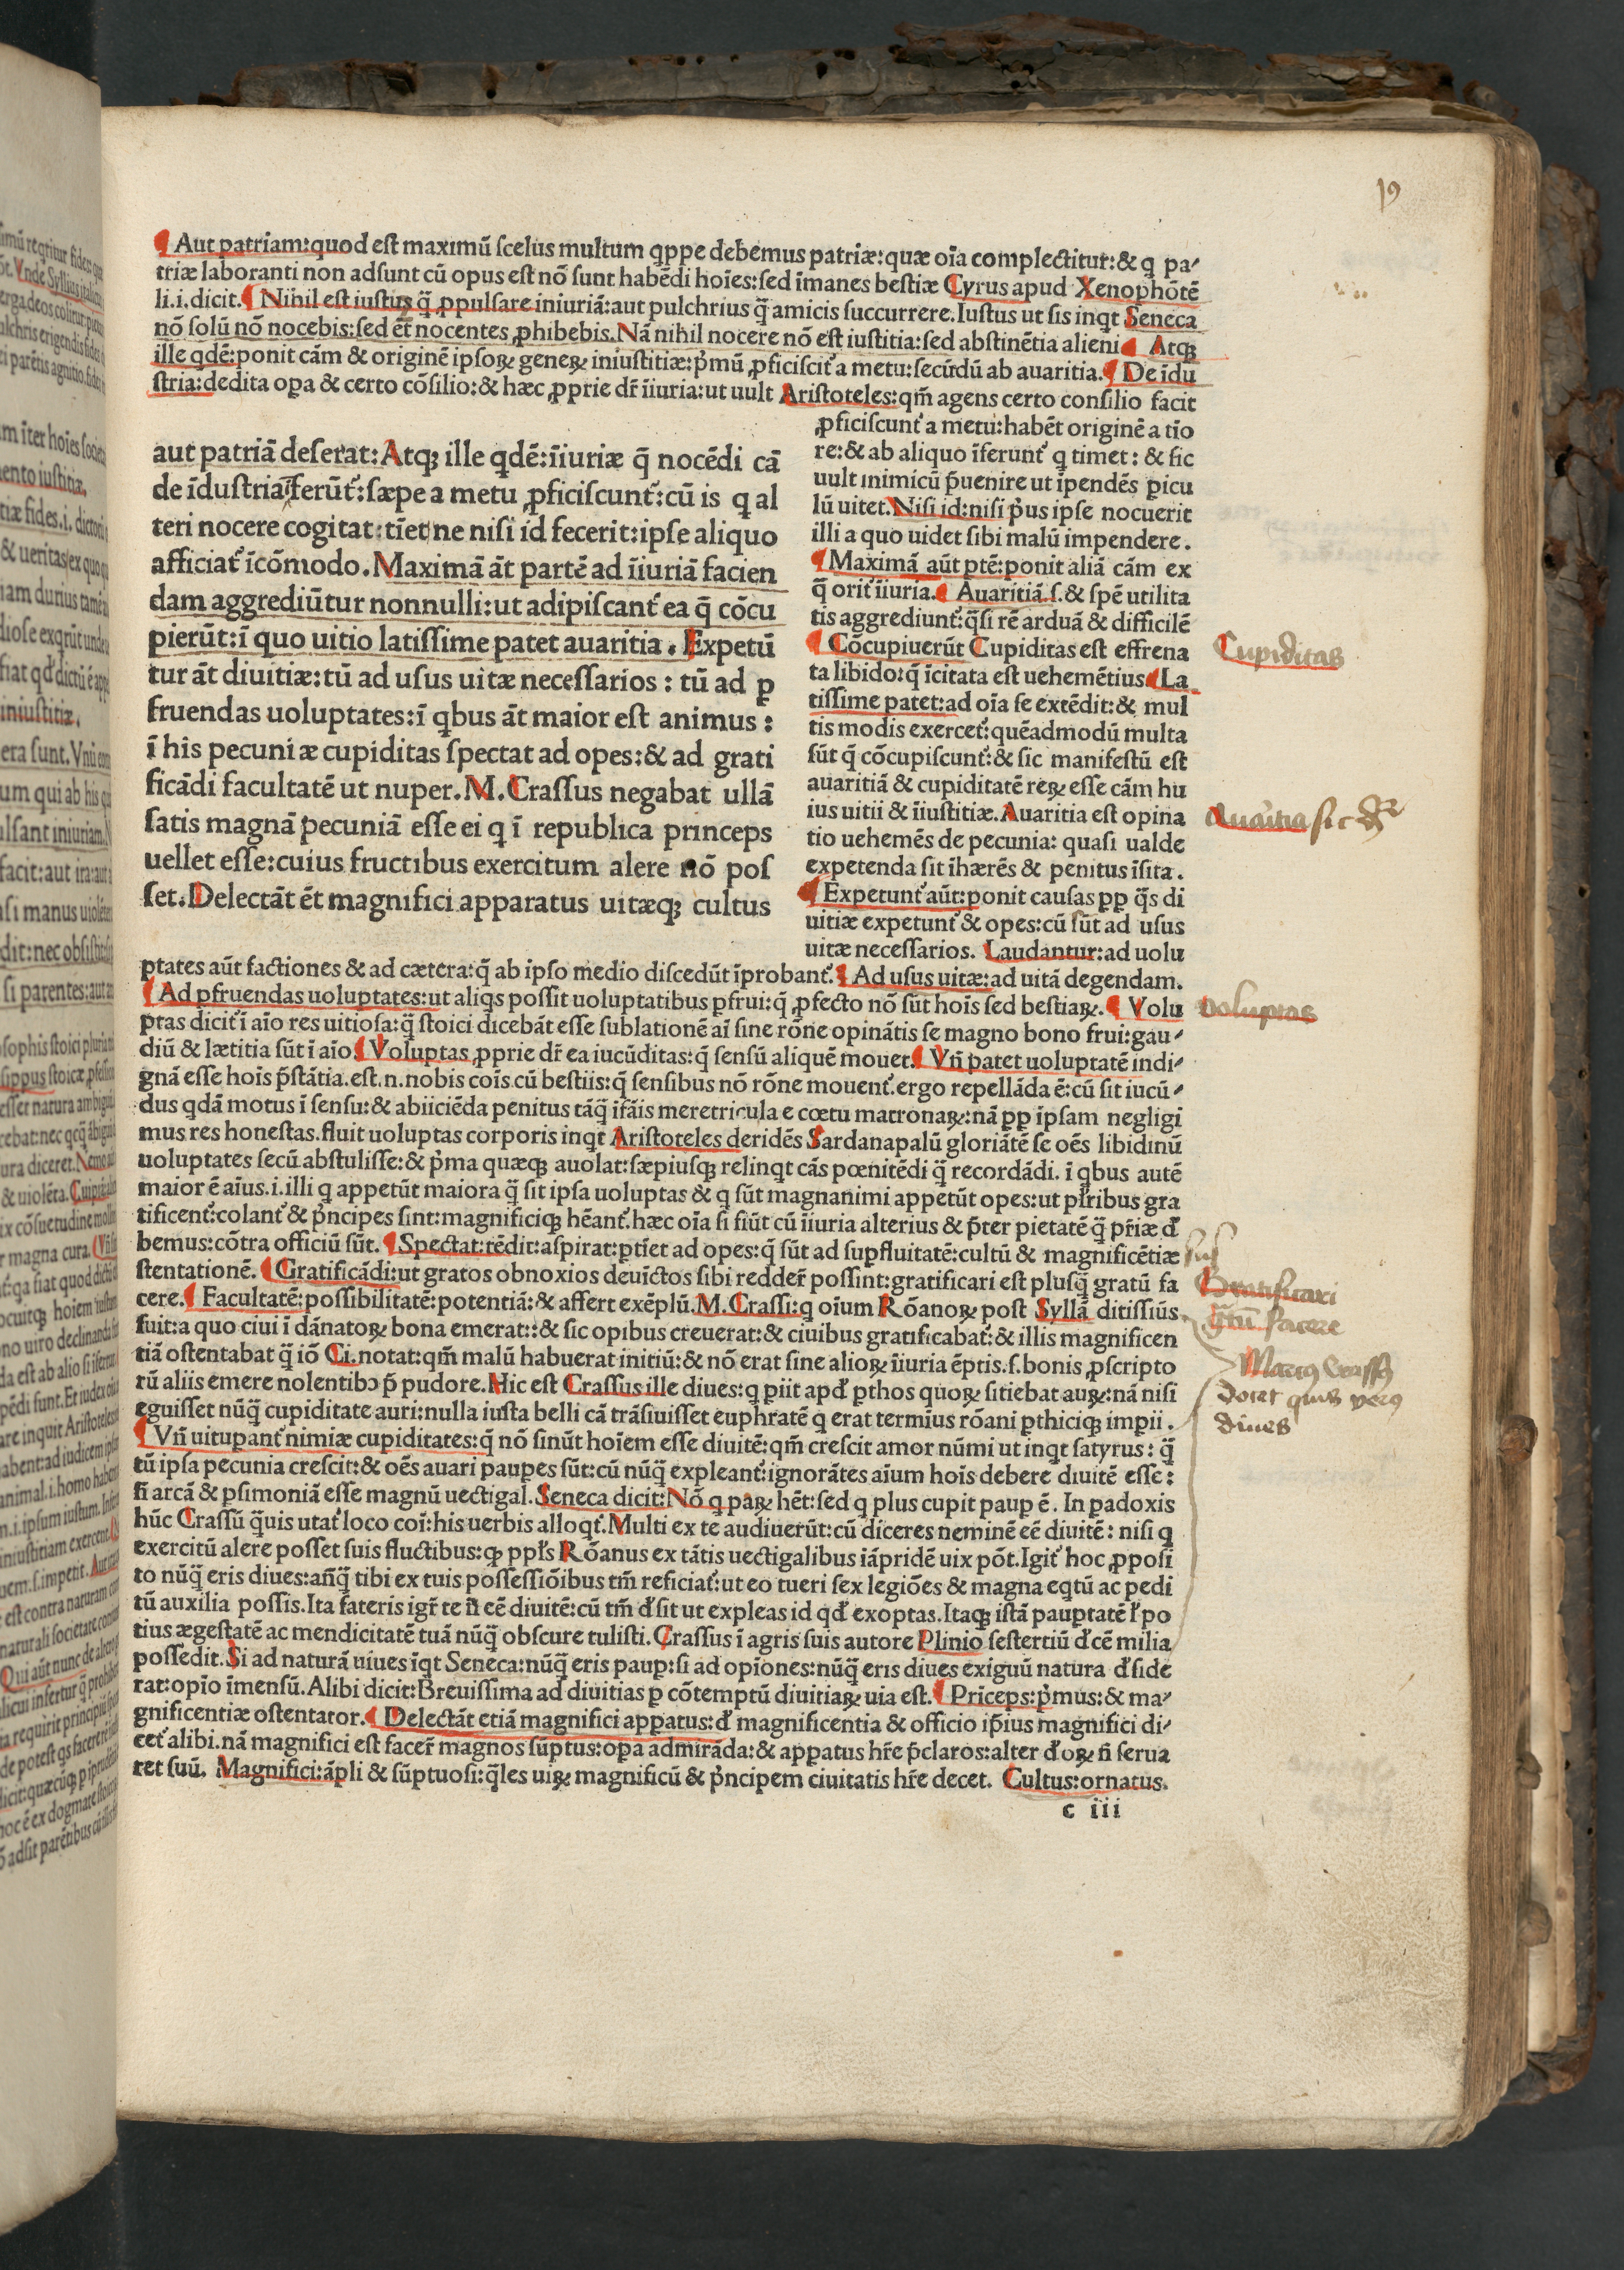 19
¶ Aut patriam:quod est maximū scelus multum qppe debemus patriæ:quæ oīa complectitur:& q pa-
triæ laboranti non adsunt cū opus est nō sunt habēdi hoīes:sed īmanes bestiæ Cyrus apud Xenophōtē
li.i.dicit.¶ Nihil est iustius q̄ ꝓpulsare iniuriā:aut pulchrius q̄ amicis succurrere.Iustus ut sis inqt Seneca
nō solū nō nocebis:sed et̄ nocentes ꝓhibebis.Nā nihil nocere nō est iustitia:sed abstinētia alieni¶ Atq;
ille qdē:ponit cām & originē ipsoꝝ geneꝝ iniustitiæ:p̄mū ꝓficiscit̄ a metu:secūdū ab avaritia.¶ De īdu
stria:dedita opa & certo cōsilio:& hæc ꝓprie dr̄ īiuria:ut uult Aristoteles:qm̄ agens certo consilio facit
aut patriā deserat:Atq; ille qdē:īiuriæ q̄ nocēdi cā
de īdustria īferūt̄:sæpe a metu ꝓficiscunt̄:cū is q al
teri nocere cogitat:tīet ne nisi id fecerit:ipse aliquo
afficiat̄ īcōmodo.Maximā āt partē ad īiuriā facien
dam aggrediūtur nonnulli:ut adipiscant̄ ea q̄ cōcu
pierūt:ī quo uitio latissime patet auaritia. Expetū
tur āt diuitiæ:tū ad usus uitæ necessarios : tū ad ꝑ
fruendas uoluptates:ī qbus āt maior est animus :
ī his pecuniæ cupiditas spectat ad opes:& ad grati
ficādi facultatē ut nuper.M.Crassus negabat ullā
satis magnā pecuniā esse ei q ī republica princeps
uellet esse:cuius fructibus exercitum alere nō pos
set.Delectāt ēt magnifici apparatus uitæq; cultus
ꝓficiscunt̄ a metu:habēt originē a tīo
re:& ab aliquo īferunt̄ q timet: & sic
uult inimicū p̄uenire ut īpendēs ꝑicu
lū uitet.Nisi id:nisi p̄us ipse nocuerit
illi a quo uidet sibi malū impendere.
¶Maximā aūt ꝑtē:ponit aliā cām ex
q̄ orit̄ īiuria.¶ Auaritiā.s.& spē utilita
tis aggrediunt̄:q̄si rē arduā & difficilē
¶ Cōcupiuerūt Cupiditas est effrena
ta libido:q̄ īcitata est uehemētius¶La
tissime patet:ad oīa se extēdit:& mul
tis modis exercet̄:quēadmodū multa
sūt q̄ cōcupiscunt̄:& sic manifestū est
auaritiā & cupiditatē reꝝ esse cām hu
ius uitii & īiustitiæ.Auaritia est opina
tio uehemēs de pecunia: quasi ualde
expetenda sit īhærēs & penitus īsita.
¶Expetunt̄ aūt:ponit causas ꝓp q̄s di
uitiæ expetunt̄ & opes:cū sūt ad usus
uitæ necessarios. Laudantur:ad uolu
ptates aūt factiones & ad cætera:q̄ ab ipso medio discedūt īprobant̄.¶ Ad usus uitæ:ad uitā degendam.
¶Ad pfruendas uoluptates:ut aliqs possit uoluptatibus ꝑfrui:q̄ ꝓfecto nō sūt hoīs sed bestiaꝝ.¶ Volu
ptas dicit̄ ī aīo res uitiosa:q̄ stoici dicebāt esse sublationē aī sine rōne opinātis se magno bono frui:gau-
diū & lætitia sūt ī aīo.¶Voluptas ꝓprie dr̄ ea iucūditas:q̄ sensū aliquē mouet.¶ Vn̄ patet uoluptatē indi-
gnā esse hoīs p̄stātia.est.n.nobis coīs cū bestiis:q̄ sensibus nō rōne mouent̄.ergo repellāda ē:cū sit iucū-
dus qdā motus ī sensu:& abiiciēda penitus tāq̄ īfāis meretricula e cœtu matronaꝝ:nā ꝓp īpsam negligi
mus res honestas.fluit uoluptas corporis inqt Aristoteles deridēs Sardanapalū gloriātē se oēs libidinū
uoluptates secū abstulisse:& p̄ma quæq; auolat:sæpiusq; relinqt cās pœnitēdi q̄ recordādi. ī qbus autē
maior ē aīus.i.illi q appetūt maiora q̄ sit ipsa uoluptas & q sūt magnanimi appetūt opes:ut pl̄ribus gra
tificent̄:colant̄ & p̄ncipes sint:magnificiq; hēant̄.hæc oīa si fiūt cū īiuria alterius & p̄ter pietatē q̄ pr̄iæ đ
bemus:cōtra officiū sūt.¶ Spectat:tēdit:aspirat:ꝑtīet ad opes:q̄ sūt ad supfluitatē:cultū & magnificētiæ
stentationē.¶ Gratificādi:ut gratos obnoxios deuīctos sibi redder̄ possint:gratificari est plusq̄ gratū fa
cere.¶ Facultatē:possibilitatē:potentiā:& affert exēplū.M.Crassi:q oīum Rōanoꝝ post Syllā ditissiūs
fuit:a quo ciui ī dānatoꝝ bona emerat::& sic opibus creuerat:& ciuibus gratificabat̄:& illis magnificen
tiā ostentabat q̄ iō Ci.notat:qm̄ malū habuerat initiū:& nō erat sine alioꝝ īiuria ēptis.s.bonis ꝓscripto
rū aliis emere nolentibꝰ p̄ pudore.Hic est Crassus ille diues:q ꝑiit apđ ꝑthos quoꝝ sitiebat auꝝ:nā nisi
eguisset nūq̄ cupiditate auri:nulla iusta belli cā trāsiuisset euphratē q erat termius rōani ꝑthiciq; impii.
¶Vn̄ uitupant̄ nimiæ cupiditates:q̄ nō sinūt hoīem esse diuitē:qm̄ crescit amor nūmi ut inqt satyrus: q̄
tū ipsa pecunia crescit:& oēs auari pauꝑes sūt:cū nūq̄ expleant̄:ignorātes aīum hoīs debere diuitē esse:
ñ arcā & ꝑsimoniā esse magnū uectigal.Seneca dicit:Nō q paꝝ hēt:sed q plus cupit pauꝑ ē. In ꝑadoxis
hūc Crassū q̄uis utat̄ loco coī:his uerbis alloqt̄.Multi ex te audiuerūt:cū diceres neminē eē diuitē: nisi q
exercitū alere posset suis fluctibus:ꝙ ppl̄s Rōanus ex tātis uectigalibus iāpridē uix pōt.Igit̄ hoc ꝓposi
to nūq̄ eris diues:añq̄ tibi ex tuis possessiōibus tm̄ reficiat̄:ut eo tueri sex legiōes & magna eqtū ac pedi
tū auxilia possis.Ita fateris igr̄ te ñ eē diuitē:cū tm̄ đsit ut expleas id qđ exoptas.Itaq; istā pauꝑtatē l̄ po
tius ægestatē ac mendicitatē tuā nūq̄ obscure tulisti.Crassus ī agris suis autore Plinio sestertiū đcē milia
possedit.Si ad naturā uiues īqt Seneca:nūq̄ eris pauꝑ:si ad opīones:nūq̄ eris diues exiguū natura đside
rat:opīo īmensū.Alibi dicit:Breuissima ad diuitias ꝑ cōtemptū diuitiaꝝ uia est.¶ Prīceps:p̄mus:& ma-
gnificentiæ ostentator.¶ Delectāt etiā magnifici appatus:đ magnificentia & officio ip̄ius magnifici di-
cet̄ alibi.nā magnifici est facer̄ magnos sūptus:opa admirāda:& appatus hr̄e p̄claros:alter đoꝝ ñ serua
ret suū. Magnifici:āpli & sūptuosi:q̄les uiꝝ magnificū & p̄ncipem ciuitatis hr̄e decet. Cultus:ornatus.
c iii
Cupiditas
Auaritia sic dr̄
Voluptas
sus
Gratificari
gr̄tū facere
Marcꝰ Crassꝰ
docet quis verꝰ
diues